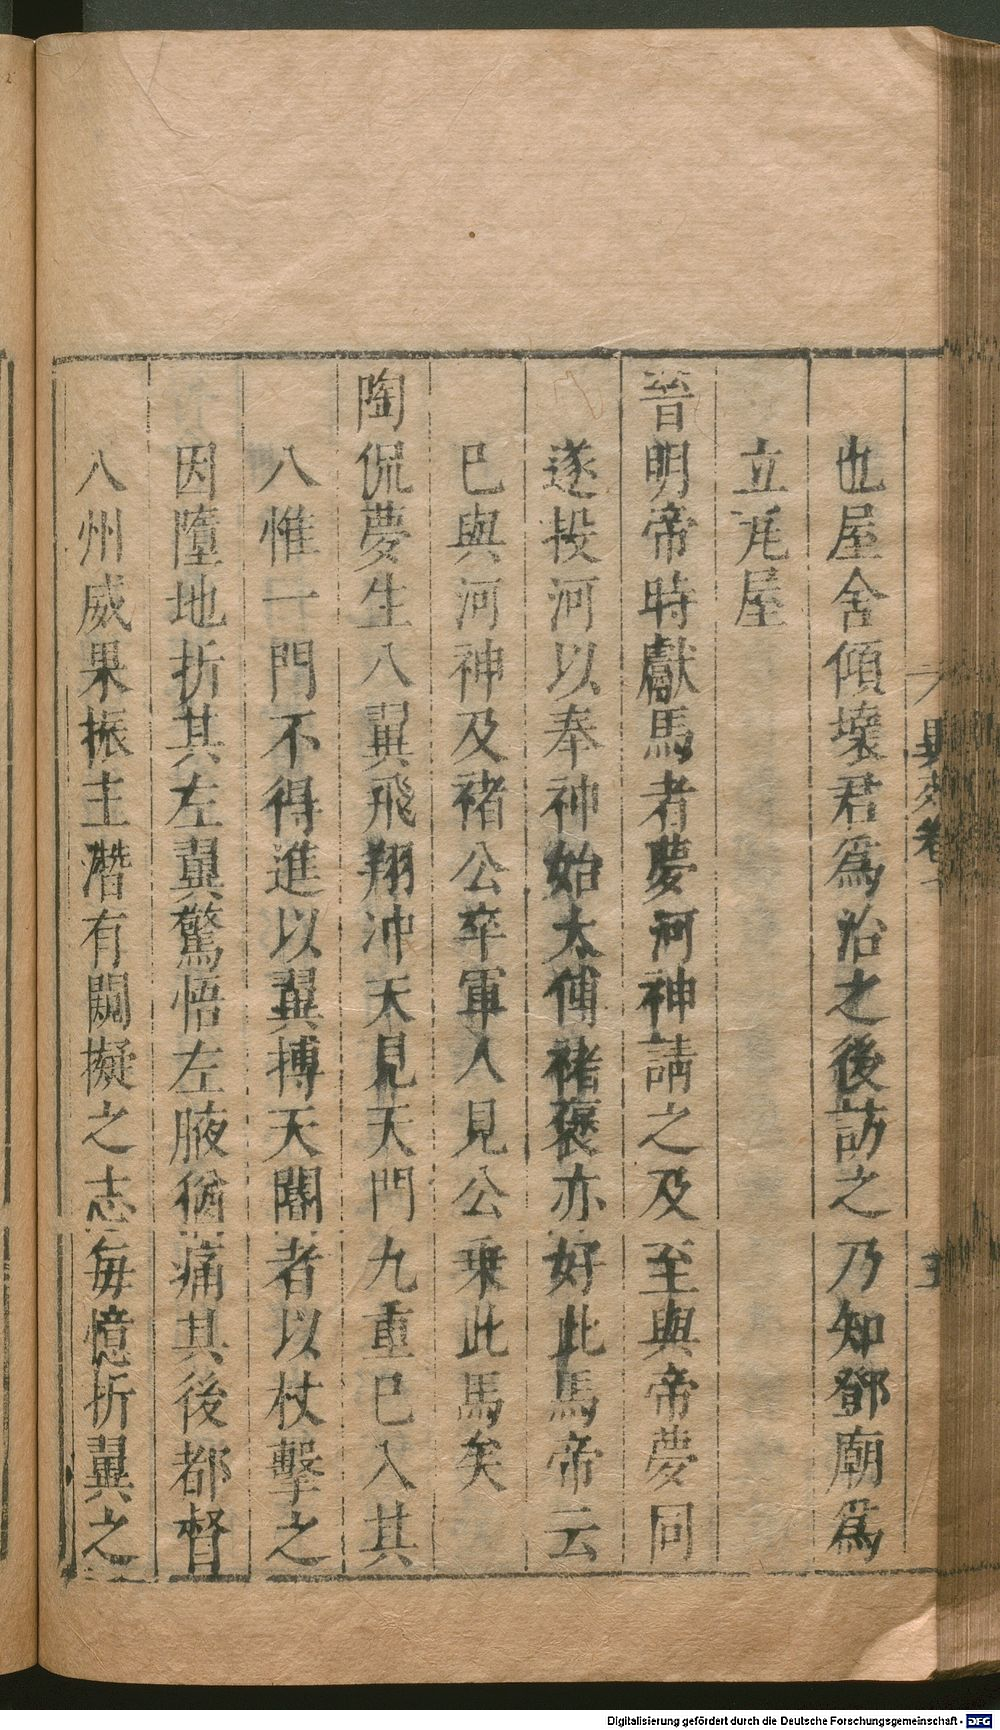 也屋舍傾壞君爲治之後訪之乃知鄧廟爲
立瓦屋
晉明帝時獻馬者夢河神請之及至與帝夢同
遂投河以奉神始太傅褚褒亦好此馬帝云
已與河神及褚公卒軍人見公乗此馬矣
陶侃夢生八翼飛翔冲天見天門九重已入其
八惟一門不得進以翼搏天閽者以杖擊之
因墮地折其左翼驚悟左腋猶痛其後都督
八州威果振主潛有闚擬之志毎憶折翼之
Digitalisierung gefördert durch die Deutsche Forschungsgemeinschaft - DFG